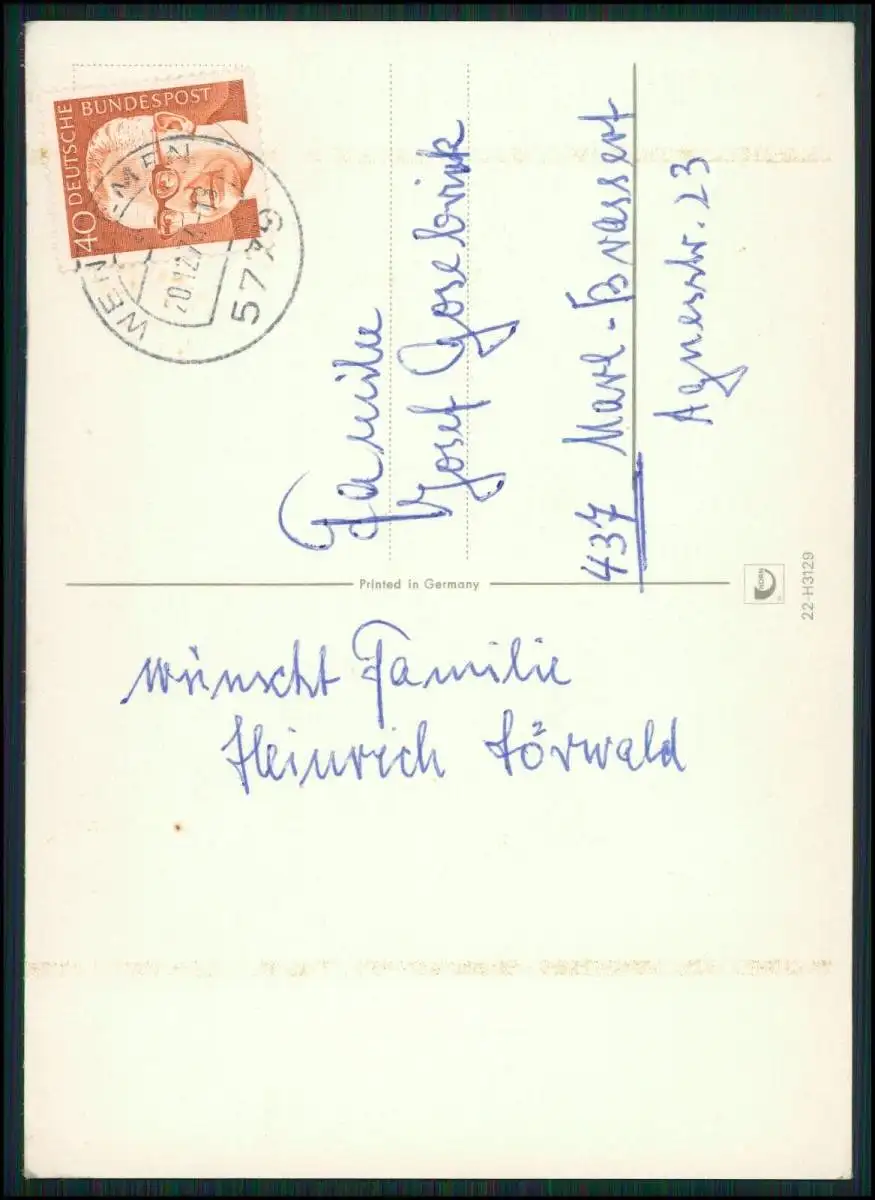 DEUTSCHE BUNDESPOST
40
5779
Familie
Josef Gosebrink
437 Marl-Brassert
Agnesstr. 23
Printed in Germany
HORN
22-H3129
wünscht Familie
Heinrich Lörwald